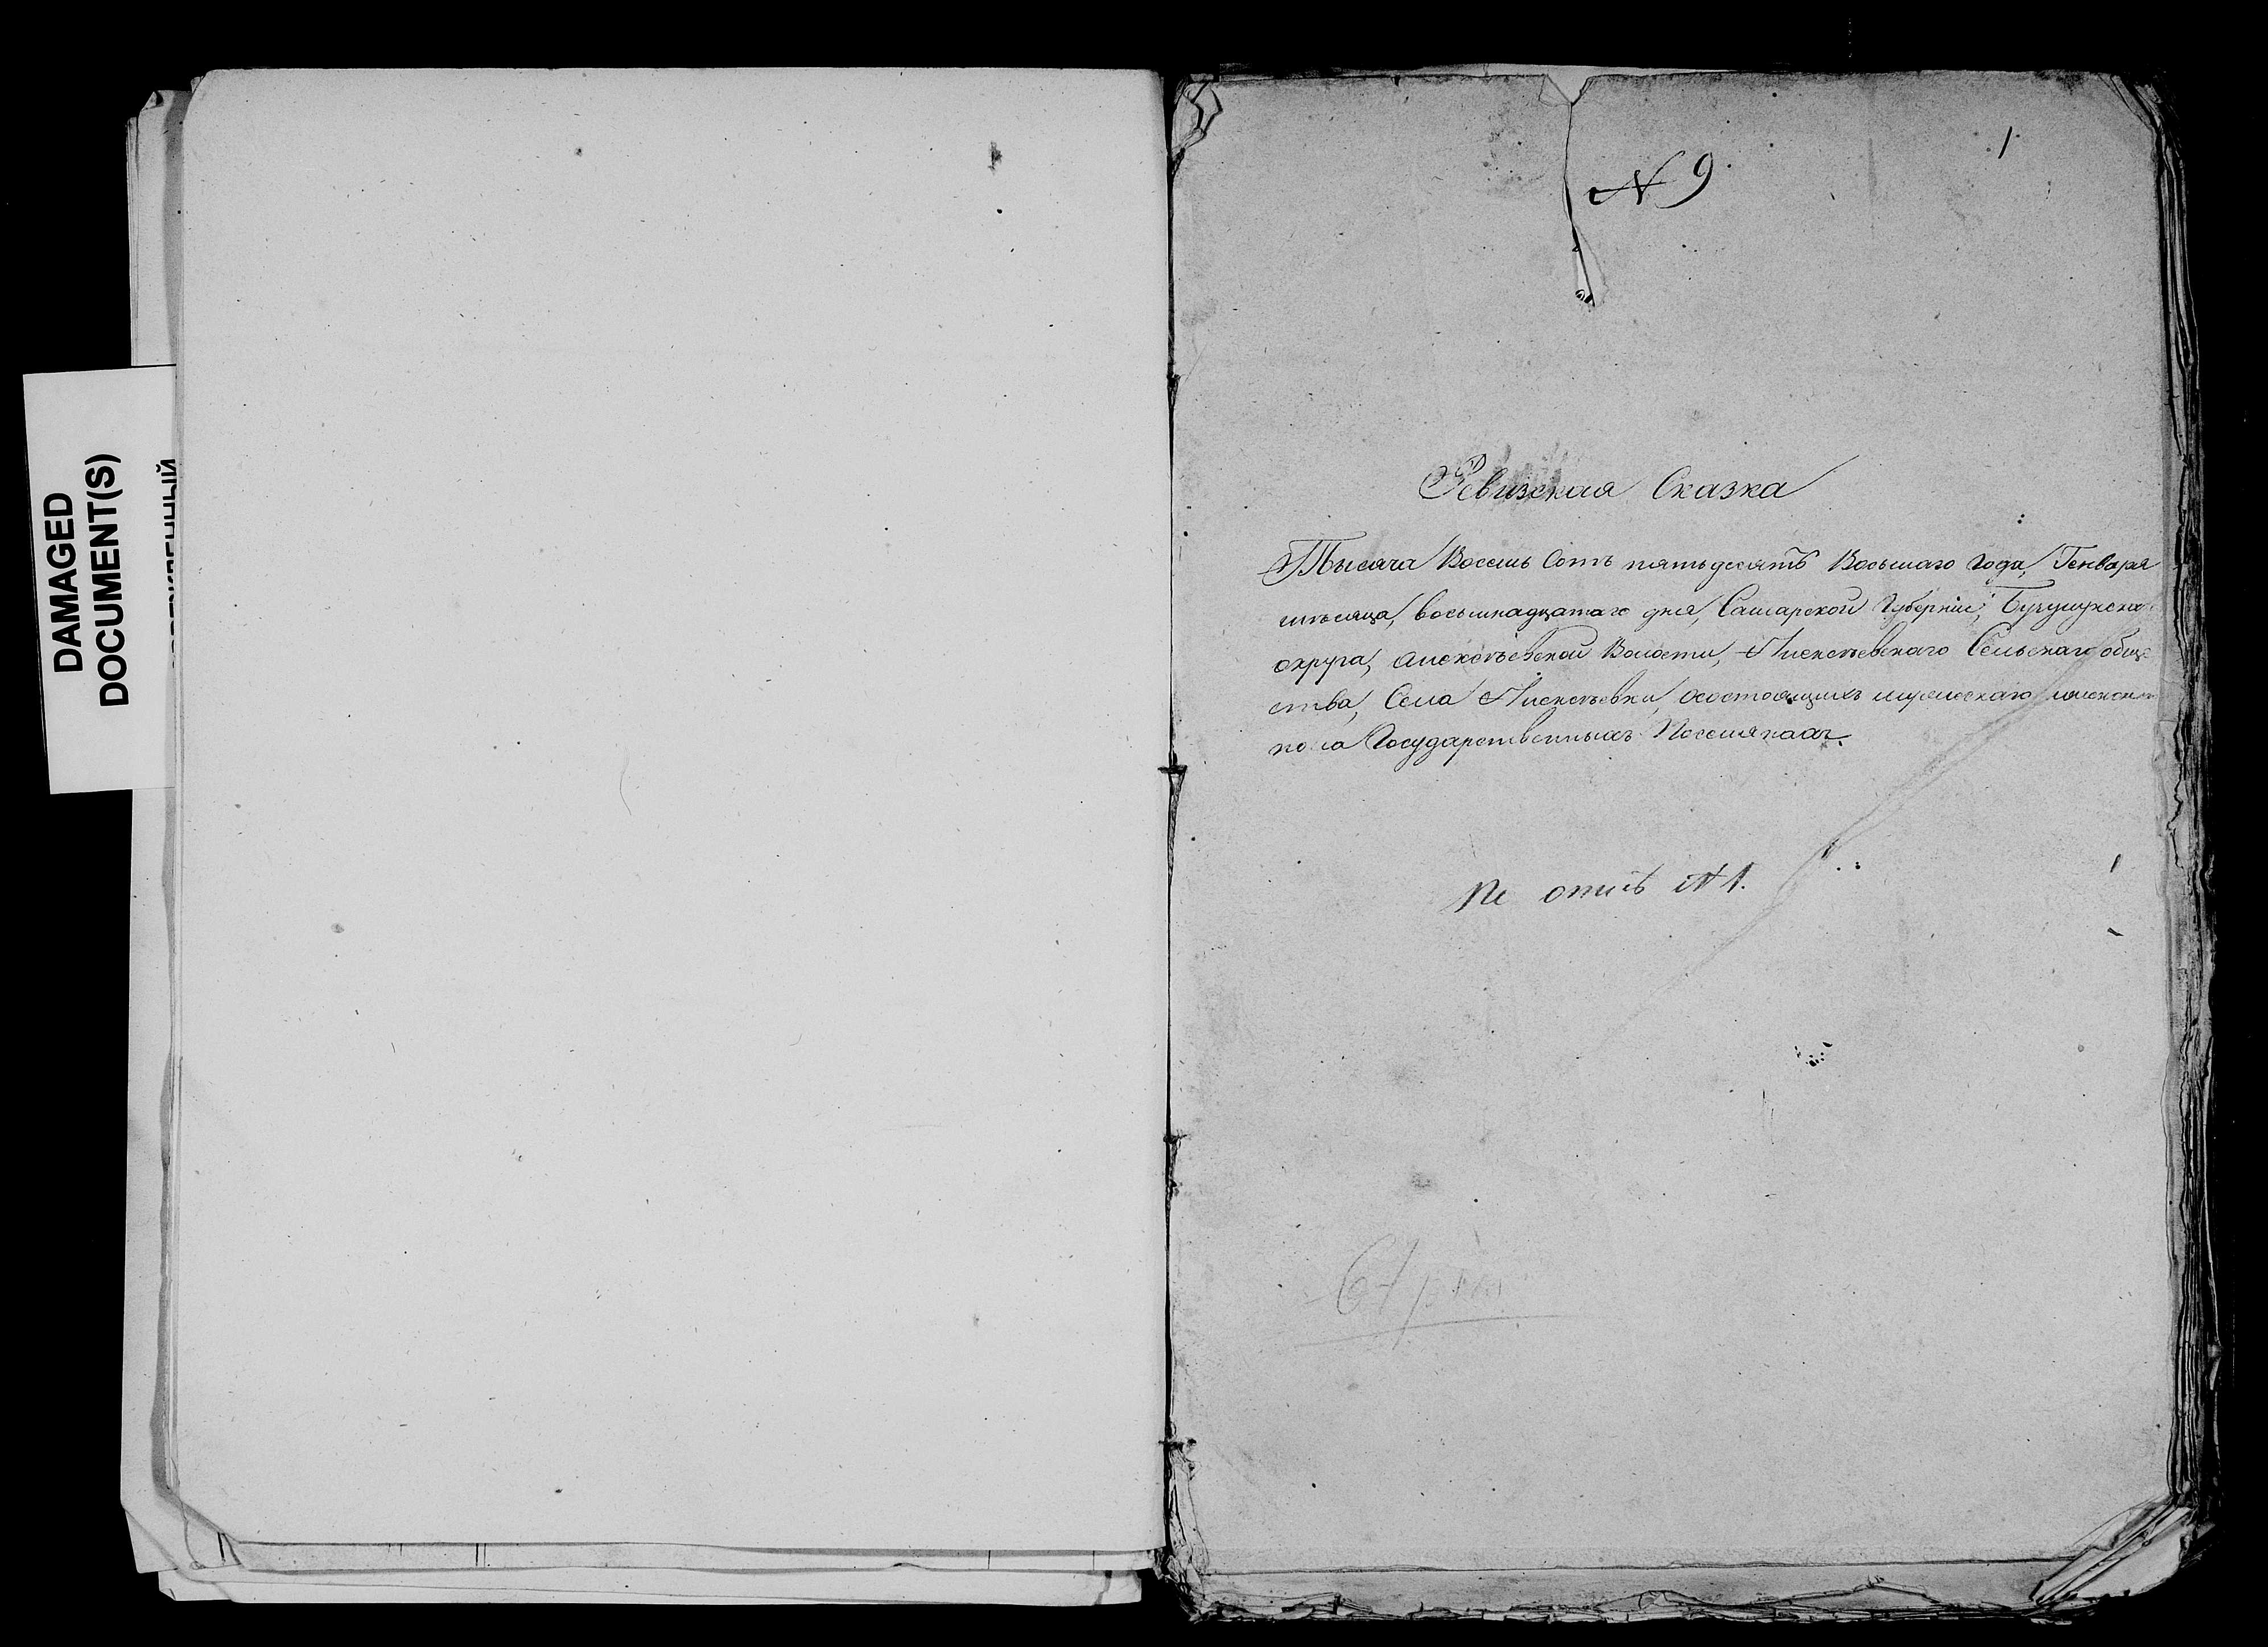 DAMAGED
DOCUMENT(S)
1
N 9
Ревизская Сказка
Тысяча Восемь Сотъ пятьдесятъ Восьмаго Года, Генваря
мѣсяца, восьмнадцатаго дня, Самарской Губерніи, Бугурусланск
округа, Алексѣевской Волости, Алексѣевскаго Сельскаго обще
ства, Села Алексѣевки, осостоящихъ мужескаго и женска
пола Государственныхъ Поселянахъ.
По описѣ N 1.